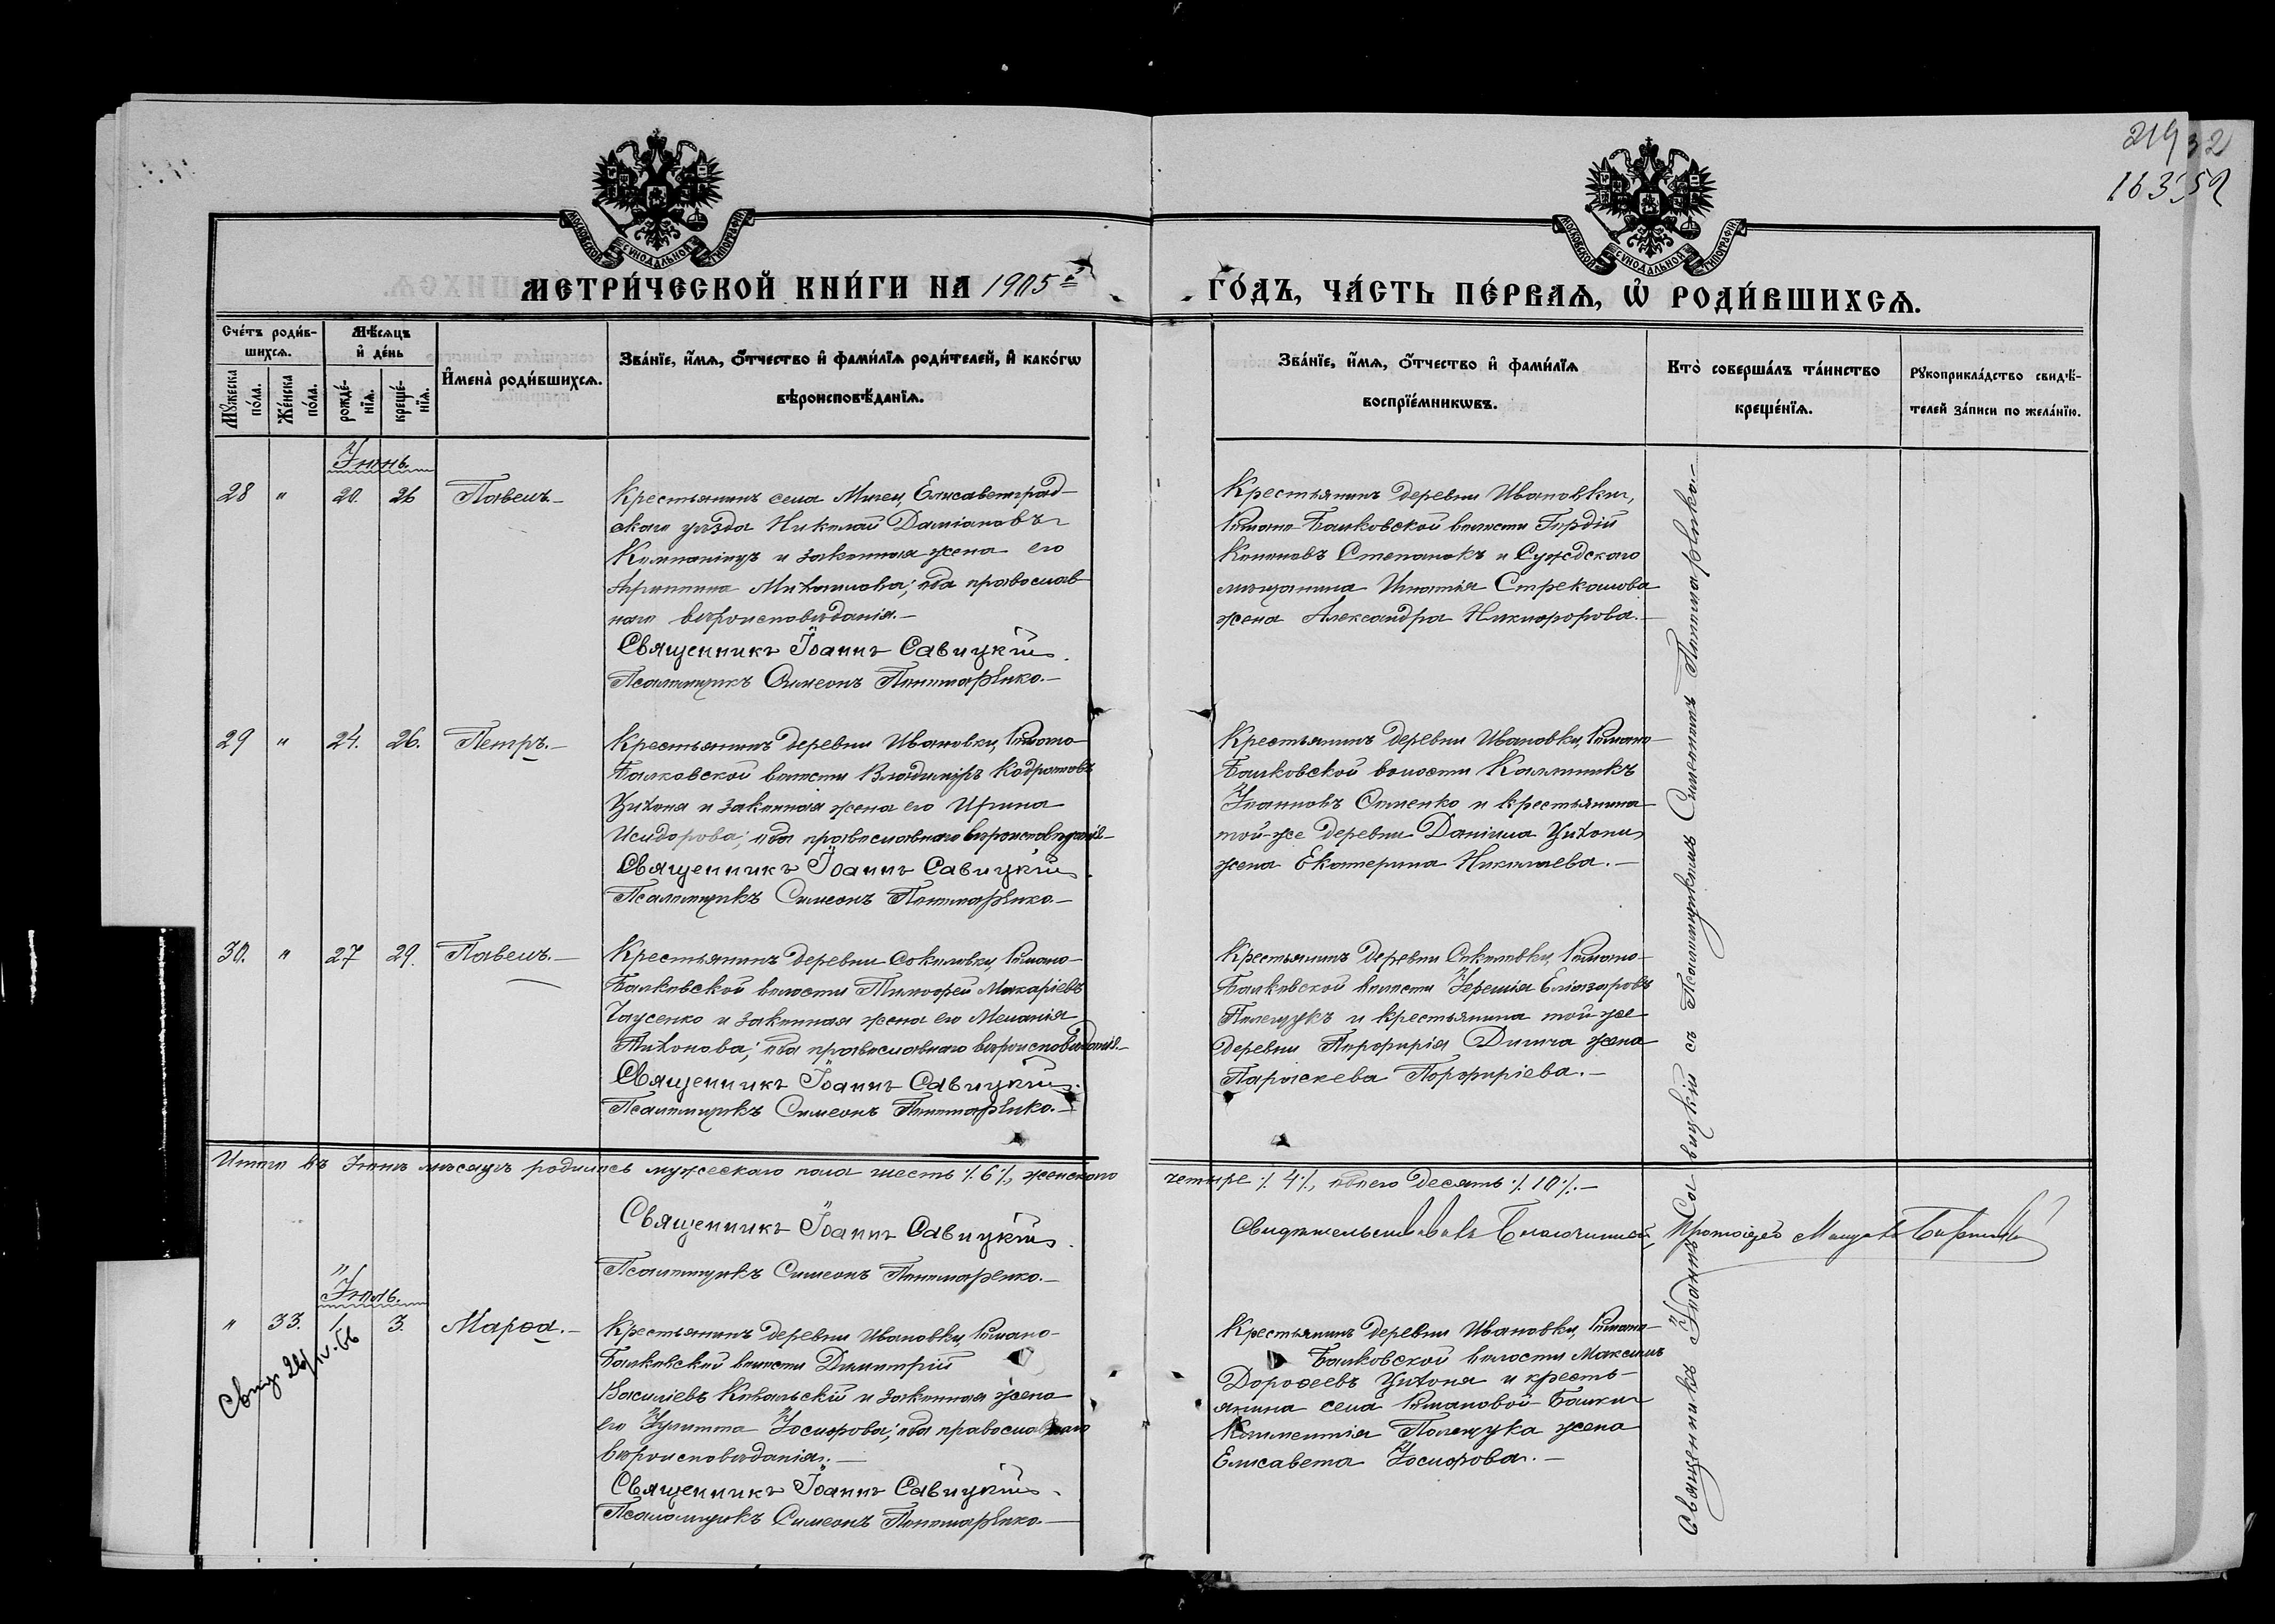 219 32
163 52
МОСКОВСКОЙ СѴНОДАЛЬНОЙ ТИПОГРАФІИ
МОСКОВСКОЙ СѴНОДАЛЬНОЙ ТИПОГРАФІИ
МЕТРИ́ЧЕСКОЙ КНИ́ГИ НА 1905 й
ГО́ДЪ, ЧА́СТЬ ПЕ́РВАѦ, Ѡ҆ РОДИ́ВШИХСѦ.
Сче́тъ роди́в-
шихсѧ.
Мꙋ́жеска по́ла.
Же́нска по́ла.
Мѣ́сѧцъ
и҆ де́нь
рожде́-
нїѧ.
креще́-
нїѧ.
И҆мена̀ роди́вшихсѧ.
Зва́нїе, и҆́мѧ, ѻ҆́тчество и҆ фами́лїѧ роди́телей, и҆ како́гѡ
вѣроисповѣ́данїѧ.
Зва́нїе, и҆́мѧ, ѻ҆́тчество и҆ фами́лїѧ
воспрїе́мникѡвъ.
Кто̀ соверша́лъ та́инство
креще́нїѧ.
Рꙋкоприкла́дство свидѣ́-
телей за́писи по жела́нїю.
Іюнь.
28 " 20. 26 Павелъ.
Крестьянинъ села Мигеи, Елисаветград-
скаго уѣзда Николай Даміановъ
Компаніецъ и законная жена его
Агриппина Михаилова; оба православ
наго вѣроисповѣданія.
Священникъ Іоаннъ Савицкій.
Псаломщикъ Симеонъ Пономаренко.
Крестьянинъ деревни Ивановки,
Романо-Балковской волости Гордій
Кононовъ Степанокъ и Суждскаго
мѣщанина Игнатія Стрекалова
жена Александра Никифорова.
29 " 24. 26. Петръ.
Крестьянинъ деревни Ивановки, Романо-
Балковской волости Владиміръ Кодратовъ
Цихоня и законная жена его Ирина
Исидорова; оба православнаго вѣроисповѣданія
Священникъ Іоаннъ Савицкій
Псаломщикъ Симеонъ Пономаренко.
Крестьянинъ деревни Ивановки, Романо-
Балковской волости Каллиникъ
Іоанновъ и крестьянина
той-же деревни Даніила Цихони
жена Екатерина Николаева.
30. " 27 29. Павелъ.
Крестьянинъ деревни Соколовки, Романо-
Балковской волости Тимофей Макаріевъ
Чаусенко и законная жена его Меланія
Тихонова; оба православнаго вѣроисповѣданія.
Священникъ Іоаннъ Савицкій.
Псаломщикъ Симеонъ Пономаренко.
Крестьянинъ деревни Соколовки, Романо-
Балковской волости Іеремія Еліазаровъ
Полещукъ и крестьянина той-же
деревни Порфирія жена
Параскева Порфиріева.
Итого въ Іюнѣ мѣсяцѣ родилось мужескаго пола шесть ·/. 6 ·/., женскаго четыре ·/. 4 ·/., обоего десять ·/. 10 ·/.
Священникъ Іоаннъ Савицкій.
Псаломщикъ Симеонъ Пономаренко.
Свидѣтельствовалъ Благочинный, Протоіерей
Іюль.
" 33. 1. 3. Марѳа.
Крестьянинъ деревни Ивановки, Романо-
Балковской волости Димитрій
Василіевъ Ковальскій и законная жена
его Іулитта Іосифова; оба православнаго
вѣроисповѣданія.
Священникъ Іоаннъ Савицкій.
Псаломщикъ Симеонъ Пономаренко.
Крестьянинъ деревни Ивановки, Романо-
Балковской волости Максимъ
Дороѳеевъ Цихоня и кресть-
янина села Романовой-Балки
Климентія Полещука жена
Елисавета Іосифова.
Священникъ Іоаннъ Савицкій съ Псаломщикомъ Симеономъ Пономаренко
Свид. 26/IV-66